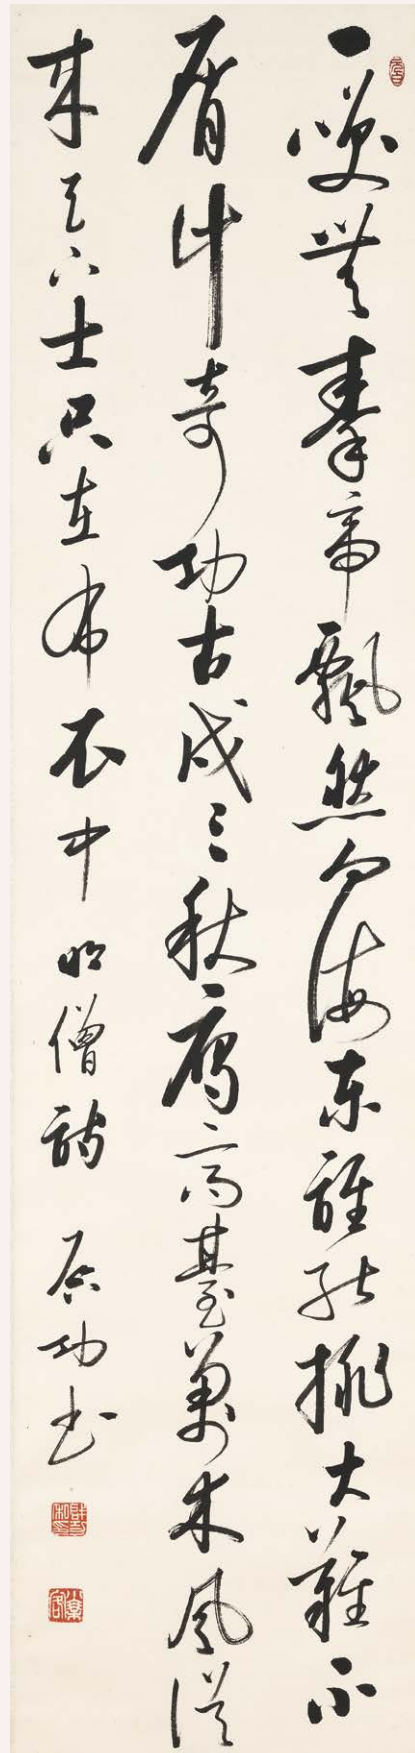 一笑無秦帝飄然向海東誰能排大難不
屑計奇功古戍三秋鴈高臺萬木風從
來天下士只在布衣中 明僧詩 启功書